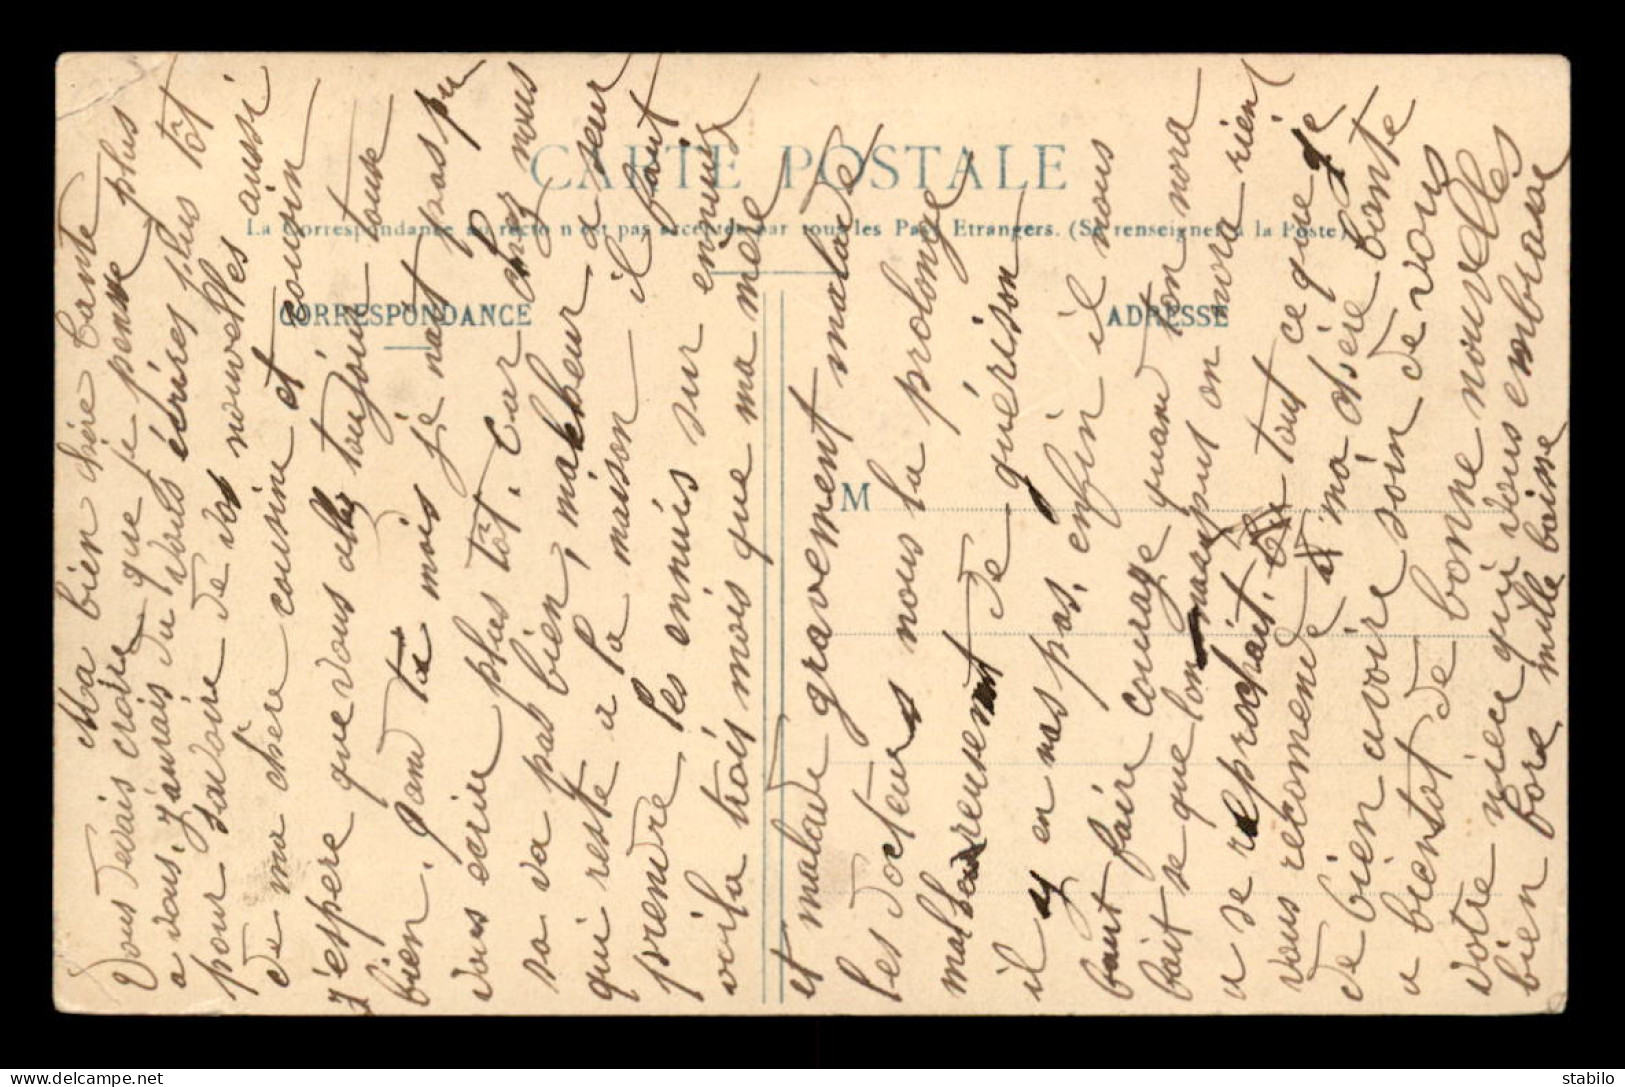 CARTE POSTALE
La Correspondance au recto n'est pas acceptée par tous les Pays Etrangers. (Se renseigner à la Poste)
CORRESPONDANCE
ADRESSE
M
Ma bien chère tante
Vous devais croire que je pense plus
a vous, j'aurais du vouls écrires plus tôt
pour savoire de vos nouvelles aussi
de ma chère cousine et cousin
j'espère que vous allez toujour touse
bien. gand ta mois je nait pas pu
vous ecrir plus tôt. Car chez nous
sa va pas bien, malheur a seur
qui reste a la maison il faut
prendre les ennuis sur ennuis
voila trois mois que ma mère
et malade gravement malade
les docteurs nous la prolonge
malheureusement de guérison
il y en nas pas, enfin il nous
faut faire courage quand ton nora
fait se que lon nauput on nora rient
a se reprochait. tout ce que je
vous recomende ma chère tante
de bien avoire soin de vous
a bientot de bonne nouvelles
votre nièce qui vous embrasse
bien fore mille baisse
stabilo